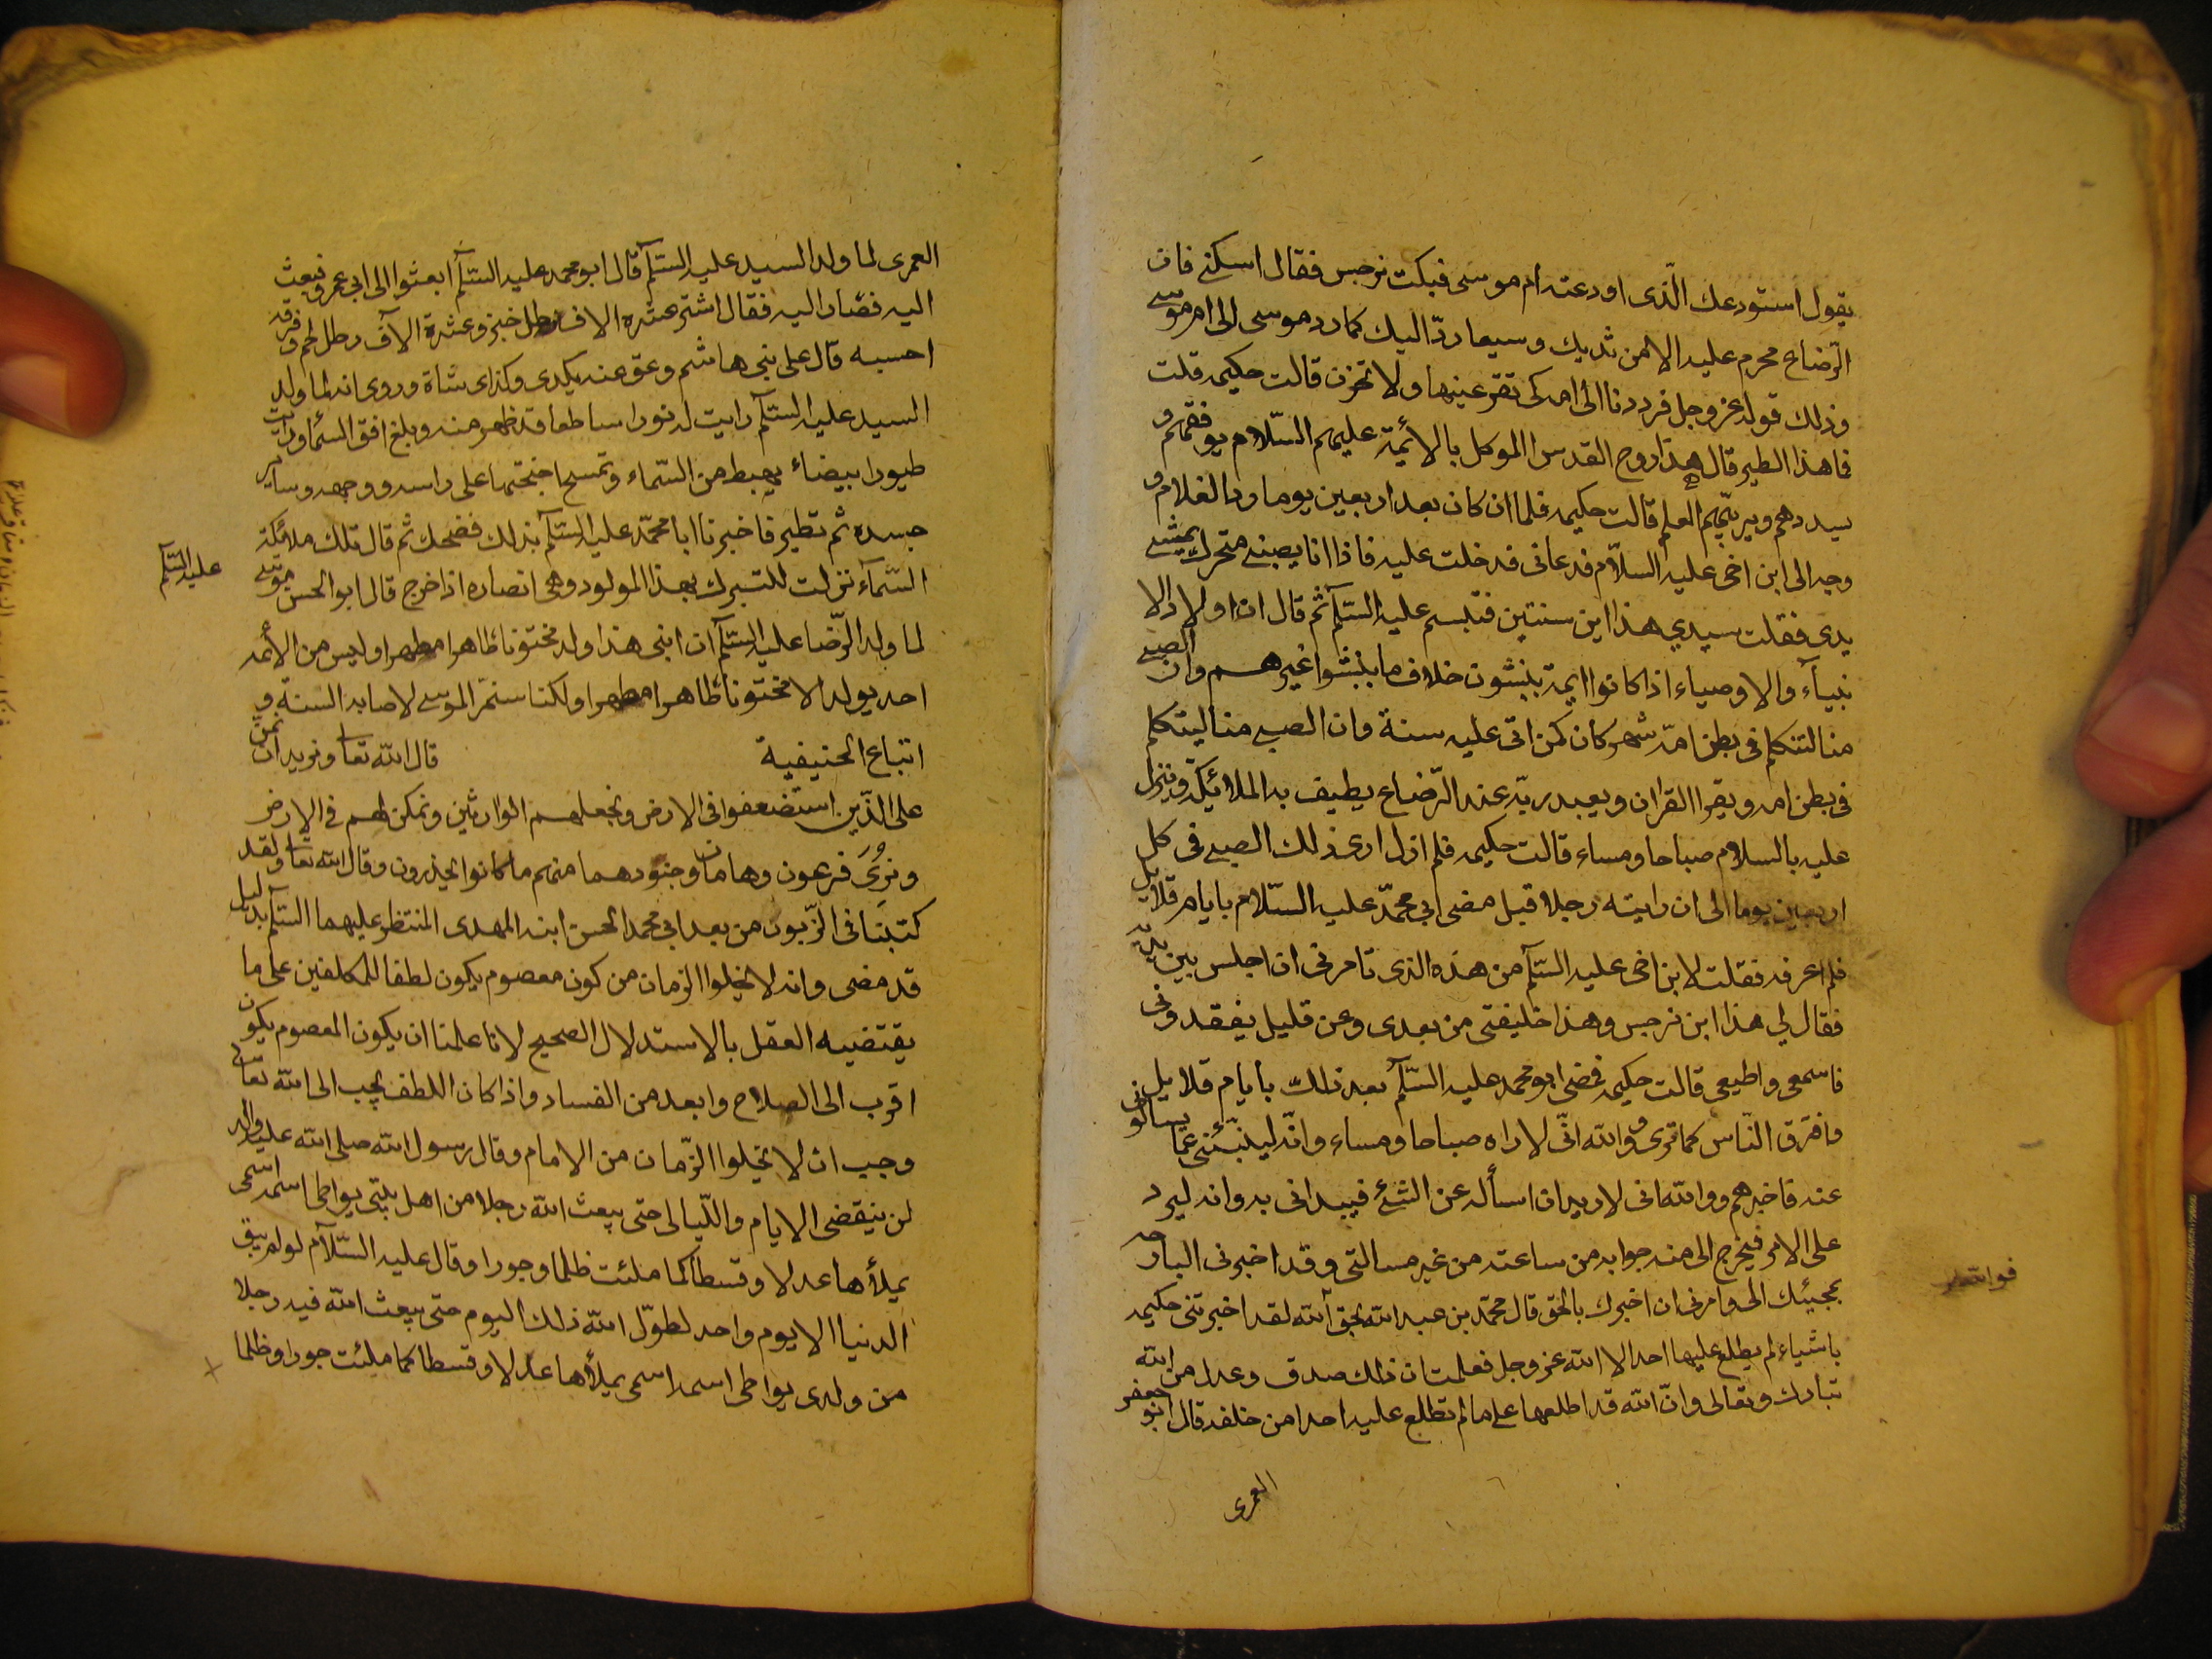 يقول استودعك الّذى اودعته ام موسى فبكت نرجس فقال اسكنى فان
الرّضاع محرم عليه الا من ثديك وسيعاد ردّا اليك كما رد موسى الى ام موسى
وذلك قوله عز وجل فرددنا الى امه كى تقر عينها ولا تحزن قالت حكيمه قلت
فما هذا الطير قال هذا روح القدس الموكل بالائمة عليهم السّلام يوفقهم و
يسددهم ويربّيهم العلم قالت حكيمه فلما ان كان بعد اربعين يوما رد الغلام و
وجه الى ابن اخى عليه السلاّم فدعانى فدخلت عليه فاذا انا بصبى متحرك يمشى
يدى فقلت سيدي هذا ابن سنتين فتبسم عليه السّلم ثم قال ان اولاد الا
نبيآء والاوصياء اذا كانوا ايمة ينشون خلاف ما ينشوا غيرهم وان الصبى
منا لتتكلم فى بطن امّه شهر كان كمن اتى عليه سنة وان الصبى منا ليتكلم
فى بطن امه ويقرا القران ويعبد ربّه عند الرّضاع يطيف به الملائيكة وتنزل
عليه بالسلام صباحا ومساء قالت حكيمه فلم ازل ارى ذلك الصبى فى كل
اربعين يوما الى ان رايته رجلا قبل مضى ابى محمّد عليه السّلام بايام قلايل
فلم اعرفه فقلت لابن اخى عليه السّلم من هذه الذى تامرنى ان اجلس بين يديه
فقال لي هذا ابن نرجس وهذا خليفتى من بعدى وعن قليل يفقدونى
فاسمعى واطيعى قالت حكيمه فمضى ابو محمد عليه السّلم بعد ذلك بايام قلايل
وافترق النّاس كما ترى ووالله انّى لاراه صباحا ومساء وانّه لينبّئنى عما يسالونى
عنه فاخبرهم ووالله انى لاريد ان اسأله عن الشئ فيبدانى به وانه ليرد
على الامر فيخرج الى منه جوابه من ساعته من غير مسالتى وقد اخبرنى البارحه
بمجيئك الى وامرنى ان اخبرك بالحق قال محمّد بن عبد الله بحق آلله لقد اخبرتنى حكيمه
باشياء لم يطلع عليها احد الا الله عز وجل فعلمت ان ذلك صدق وعدل من الله
تبارك وتعالى وانّ الله قد اطلعها على ما لم تطلع عليه احدا من خلقه قال ابو جعفر
العمرى
العمرى لما ولد السيد عليه السّلم قال ابو محمد عليه السّلم ابعثوا الى ابى عمرو فبعث
اليه فصار اليه فقال اشتر عشره الاف رطل خبز وعشرة الآف رطل لحم وفرقه
احسبه قال على بنى هاشم وعق عنه بكذى وكذى شاة وروى انه لما ولد
السيد عليه السّلم رايت له نورا ساطعا قد ظهر منه وبلغ افق السّماء ورايت
طيورا بيضاء يهبط من السّماء وتمسح اجنحتها على راسه ووجهه وساير
جسده ثم تطير فاخبرنا ابا محمّد عليه السّلم بذلك فضحك ثم قال تلك ملائكة
السّمآء نزلت للتبرك بهذا المولود وهى انصاره اذا خرج قال ابو الحسن موسى
عليه السّلم
لما ولد الرّضا عليه السّلم ان ابنى هذا ولد مختونا ظاهرا مطهرا وليس من الائمه
احد يولد الا مختونا ظاهرا مطهرا ولكنا سنمّر الموسى لاصابه السنة و
اتباع الحنيفية قال الله تعا ونريد ان نمنّ
على الذّين استضعفوا فى الارض ونجعلهم الوارثين ونمكن لهم فى الارض
ونرُىَ فرعون وهامان وجنودهما منهم ما كانوا يحذرون وقال الله تعا ولقد
كتبَنا فى الزّبور من بعد ابى محمد الحسن ابنه المهدى المنتظر عليهما السّلم بدليل
قد مضى وانه لا يخلوا الزمان من كون معصوم يكون لطفا للمكلفين على ما
يقتضيه العقل بالاستدلال الصحيح لانا علمنا ان يكون المعصوم يكون
اقرب الى الصلاح وابعد من الفساد واذا كان اللطف يجب الى الله تعا
وجب ان لا يخلوا الزّمان من الامام وقال رسول الله صلى الله عليه واله
لن ينقضى الايام واللّيالى حتى يبعث الله رجلا من اهل بيتى يواطى اسمه اسمى
يملأها عدلا وقسطا كما ملئت ظلما وجورا وقال عليه السّلآم لو لم يبق
الدنيا الا يوم واحد لطوّل الله ذلك اليوم حتى يبعث الله فيه رجلا
من ولدى يواطى اسمه اسمى يملأها عدلا وقسطا كما ملئت جورا وظلما